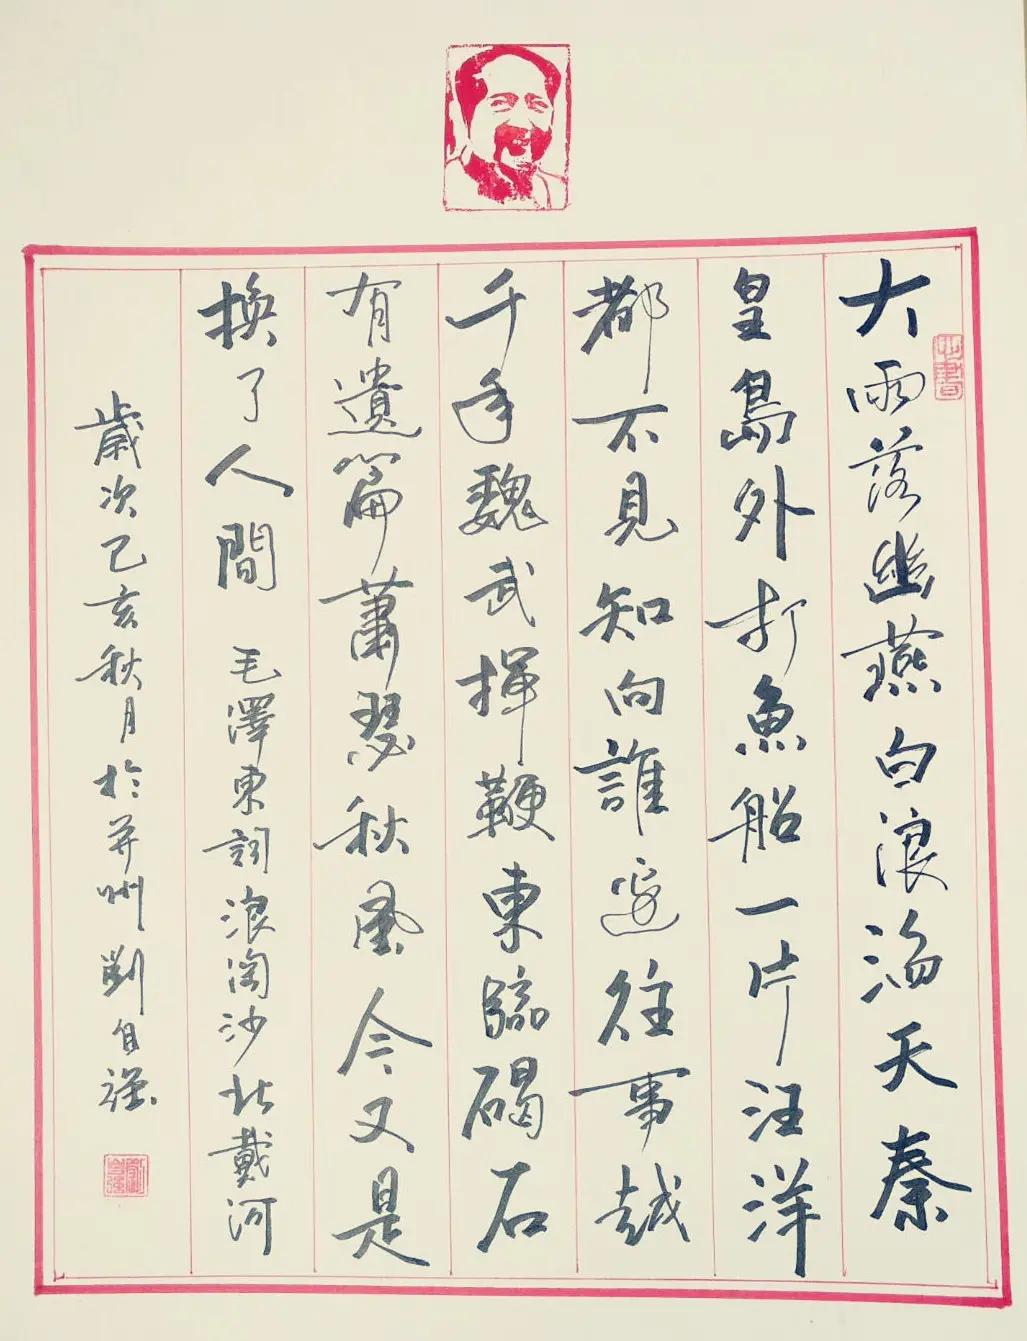 大雨落幽燕白浪滔天秦
皇島外打魚船一片汪洋
都不見知向誰邊往事越
千年魏武揮鞭東臨碣石
有遺篇蕭瑟秋風今又是
換了人間 毛澤東詞浪淘沙北戴河
歲次己亥秋月於并州劉自強
劉自強